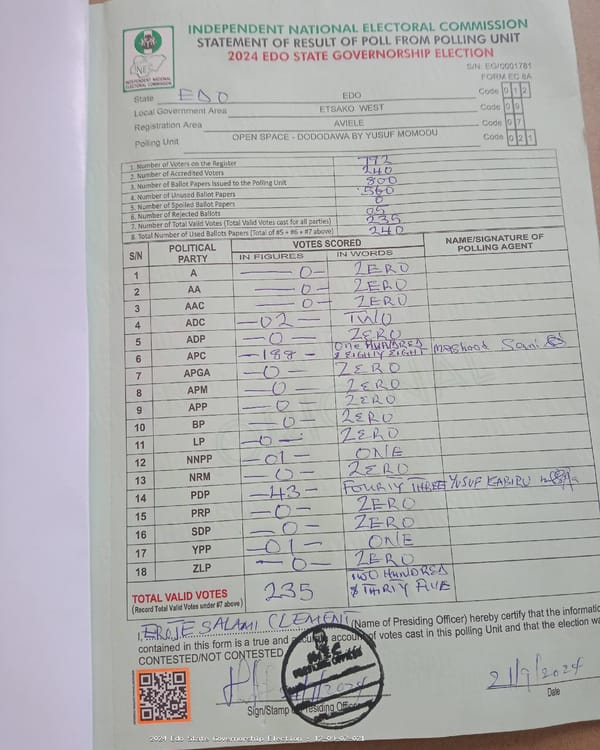 INDEPENDENT NATIONAL ELECTORAL COMMISSION
STATEMENT OF RESULT OF POLL FROM POLLING UNIT
2024 EDO STATE GOVERNORSHIP ELECTION
INDEPENDENT NATIONAL ELECTORAL COMMISSION
S/N. EG/0001781
FORM EC 8A
State EDO EDO Code 0 1 2
Local Government Area ETSAKO WEST Code 0 9
Registration Area AVIELE Code 0 7
Polling Unit OPEN SPACE - DODODAWA BY YUSUF MOMODU Code 0 2 1
1. Number of Voters on the Register 772
2. Number of Accredited Voters 240
3. Number of Ballot Papers Issued to the Polling Unit 800
4. Number of Unused Ballot Papers 560
5. Number of Spoiled Ballot Papers 0
6. Number of Rejected Ballots 05
7. Number of Total Valid Votes (Total Valid Votes cast for all parties) 235
8. Total Number of Used Ballots Papers (Total of #5 + #6 + #7 above) 240
S/N POLITICAL PARTY VOTES SCORED NAME/SIGNATURE OF POLLING AGENT
IN FIGURES IN WORDS
1 A — 0 — ZERO
2 AA — 0 — ZERO
3 AAC — 0 — ZERO
4 ADC — 02 — TWO
5 ADP — 0 — ZERO
6 APC — 188 — ONE HUNDRED & EIGHTY EIGHT Mashood Sani
7 APGA — 0 — ZERO
8 APM — 0 — ZERO
9 APP — 0 — ZERO
10 BP — 0 — ZERO
11 LP — 0 — ZERO
12 NNPP — 01 — ONE
13 NRM — 0 — ZERO
14 PDP — 43 — FOURTY THREE YUSUF KABIRU
15 PRP — 0 — ZERO
16 SDP — 0 — ZERO
17 YPP — 01 — ONE
18 ZLP — 0 — ZERO
TOTAL VALID VOTES 235 TWO HUNDRED & THIRTY FIVE
(Record Total Valid Votes under #7 above)
I, EROJE SALAMI CLEMENT (Name of Presiding Officer) hereby certify that the informatio
contained in this form is a true and accurate account of votes cast in this polling Unit and that the election wa
CONTESTED/NOT CONTESTED
21/9/2024
Sign/Stamp of Presiding Officer Date
2024 Edo State Governorship Election - 12-09-07-021